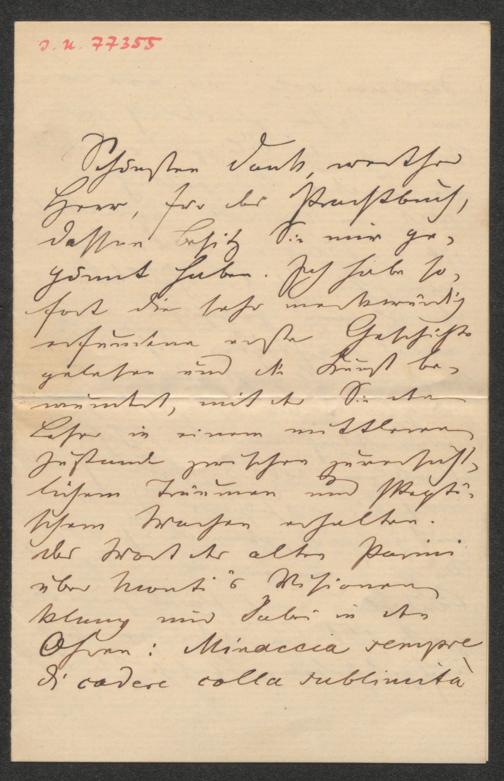 J. N. 77355
Schönsten Dank, werther
Herr, für das Prachtbuch,
dessen Besitz Sie mir ge-
gönnt haben. Ich habe so-
fort die sehr merkwürdig
erfundene erste Geschichte
gelesen und die Kunst be-
wundert, mit der Sie den
Leser in einem mittleren
Zustand zwischen zuversicht-
lichem Träumen und skepti-
schem Wachen erhalten.
Das Wort des alten Parini
über Monti's Visionen
klang mir dabei in den
Ohren: Minaccia sempre
di cadere colla sublimità